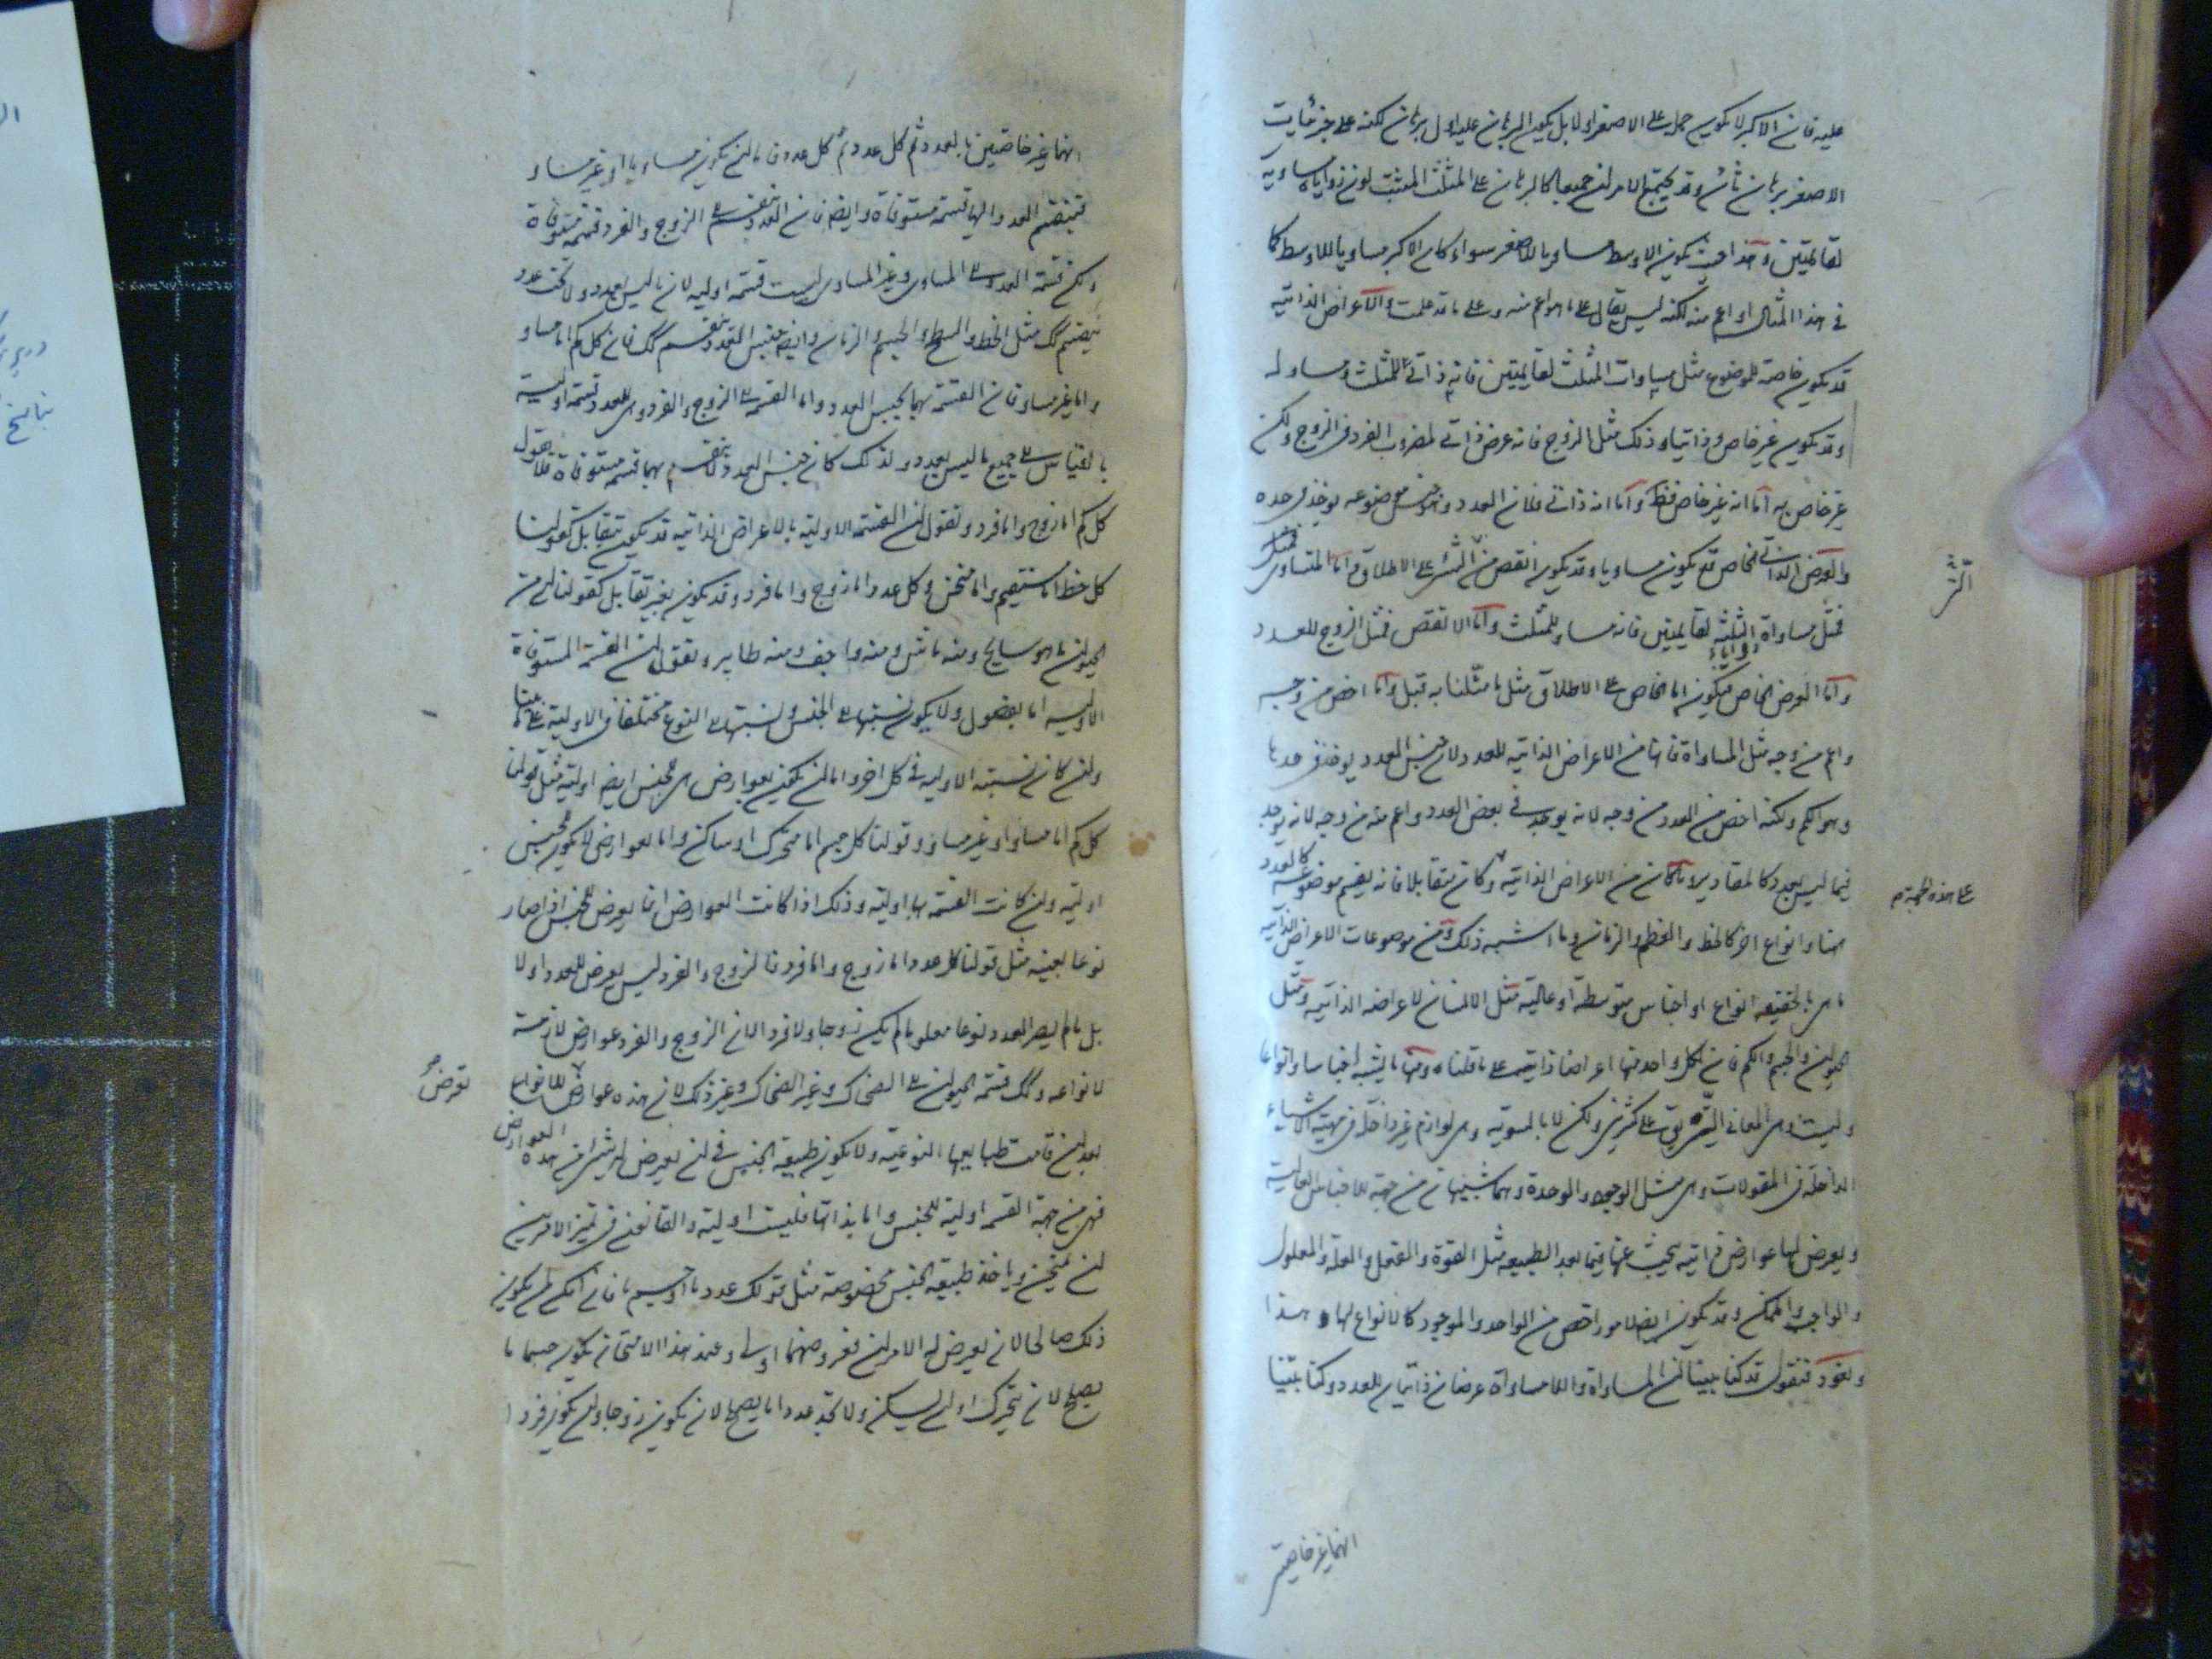 عليه فان الاكبر لا يكون حمله على الاصغر اولا بل يكون البرهان عليه اول برهان لكنه على جزئيات
الاصغر برهان ثان وقد يجتمع الامران جميعا كالبرهان على المثلث المثبت لون زواياه مساوية
لقائمتين وهذا حيث يكون الاوسط مساويا للاصغر سواء كان الاكبر مساويا للاوسط كما
في هذا المثال او اعم منه لكنه ليس يقال على ما هو اعم منه وعلى ما قد علمت والاعراض الذاتية
قد يكون خاصة للموضوع مثل مساوات المثلث لقائمتين فانه ذاتي للمثلث ومساو له
وقد يكون غير خاص وذاتيا وذلك مثل الزوج فانه عرض ذاتي لمضروب الفرد في الزوج ولكن
غير خاص به اما انه غير خاص فظ واما انه ذاتي فلان العدد وهو جنس موضوعه يوخذ في حده
والعرض الذاتي الخاص قد يكون مساويا وقد يكون انقص من الشئ على الاطلاق اما المتساوى فمثل
فمثل مساواة الثلثة لقائمتين فانه مساو للمثلث واما الانقص فمثل الزوج للعدد
زوايا
واما العرض الخاص فيكون اما الخاص على الاطلاق مثل ما مثلنا به قبل واما اخص من وجه
واعم من وجه مثل المساواة فانها من الاعراض الذاتية للعدد لان جنس العدد يوخذ في حدها
وهو الكم ولكنه اخص من العدد من وجه لانه يوجد في بعض العدد واعم منه من وجه لانه يوجد
فيما ليس بعدد كالمقادير ما كان من الاعراض الذاتية وكان متقابلا فانه يقسم موضوعه كالعدد
هنا وانواع اخر كالخط والعظم والزمان وما اشبه ذلك ومن موضوعات الاعراض الذاتية
ما هى بالحقيقه انواع او اجناس متوسطة او عالية مثل الانسان لاعراضه الذاتية ومثل
الحيوان والجسم والكم فان لكل واحد منها اعراضا ذاتية على ما قلناه ومنها ما يشبه اجناسا وانواعا
وليست وهى المعانى التى يقع على كثيرين ولكن لا بالسوية وهى لوازم غير داخلة في مهية الاشياء
الداخلة في المقولات وهى مثل الوجود والوحدة وهما شبيهان من جهة للاجناس العالية
ويعرض لها عوارض ذاتية يبحث عنها فيما بعد الطبيعه مثل القوة والفعل والعلة والمعلول
والواجب والممكن وقد يكون ايضا لامور اخص من الواحد والموجود كالانواع لها وهذا
ونعود فنقول قد كنا بينا ان المساواة واللامساواة عرضان ذاتيان للعدد وكنا بينا
الشئ
على هذه الجهة م
انهما غير خاصتين
انهما غير خاصتين بالعدد ثم كل عدد ثم كل عدد فاما ان يكون مساويا او غير مساو
فينقسم العدد اليها قسمة مستوفاة وايضا فان العدد ينقسم الى الزوج والفرد قسمة مستوفاة
ولكن قسمة العدد الى المساوى وغير المساوى ليست قسمة اولية لان ما ليس بعدد ولا تحت عدد
ينقسم كك مثل الخط والسطح والجسم والزمان وايضا جنس العدد ينقسم كك فان كل كم اما مساو
واما غير مساو فان القسمة بهما لجنس العدد واما القسمة الى الزوج والفرد وهى للعدد قسمة اولية
بالقياس الى جميع ما ليس بعدد ولذلك كان جنس العدد لا ينقسم بهما قسمة مستوفاة فلا تقول
كل كم اما زوج واما فرد ونقول ان القسمة الاولية بالاعراض الذاتية قد يكون بتقابل كقولنا
كل خط اما مستقيم واما منحن وكل عدد اما زوج واما فرد وقد يكون بغير تقابل كقولنا ان من
الحيوان ما هو سابح ومنه ماش ومنه زاحف ومنه طاير ونقول ان القسمة المستوفاة
الاولية اما بفصول ولا يكون نسبتها الى الجنس ونسبتها الى النوع مختلفا في الاولية على ما بينا
وان كان نسبته الاولية في كل اخر واما ان يكون بعوارض هى للجنس ايضا اولية مثل قولنا
كل كم اما مساو او غير مساو وقولنا كل جسم اما متحرك او ساكن واما بعوارض لا يكون للجنس
اولية وان كانت القسمة بها اولية وذلك اذا كانت العوارض انما يعرض للجنس اذا صار
نوعا بعينه مثل قولنا كل عدد اما زوج واما فرد فالزوج والفرد ليس يعرض للعدد اولا
بل ما لم يصر العدد نوعا معلوما لم يكن زوجا ولا فردا لان الزوج والفرد عوارض لازمة
لانواعه وكك قسمة الحيوان الى الضحاك وغير الضحاك وغير ذلك لان هذه عوارض للانواع
بعد ان قامت طبايعها النوعية ولا يكون طبيعة الجنس في ان يعرض لها شئ من هذه العوارض
فهى من جهة القسمة اولية للجنس واما بذاتها فليست اولية والقانون في تمييز الامرين
ان تمتحن وياخذ طبيعة الجنس مخصوصة مثل قولك عدد ما او جسم ما فان امكن ان يكون
ذلك صالحا لان يعرض له الامران فعروضهما اولى وعند هذا الامتحان يكون جسما ما
يصلح لان يتحرك او لان يسكن ولا تجد عددا ما يصلح لان يكون زوجا وان يكون فردا
تعرض